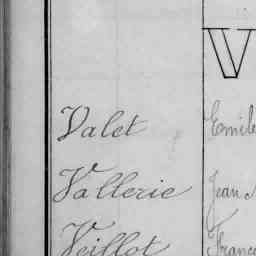 V
Valet Emile
Vallerie Jean
Veillot Franç